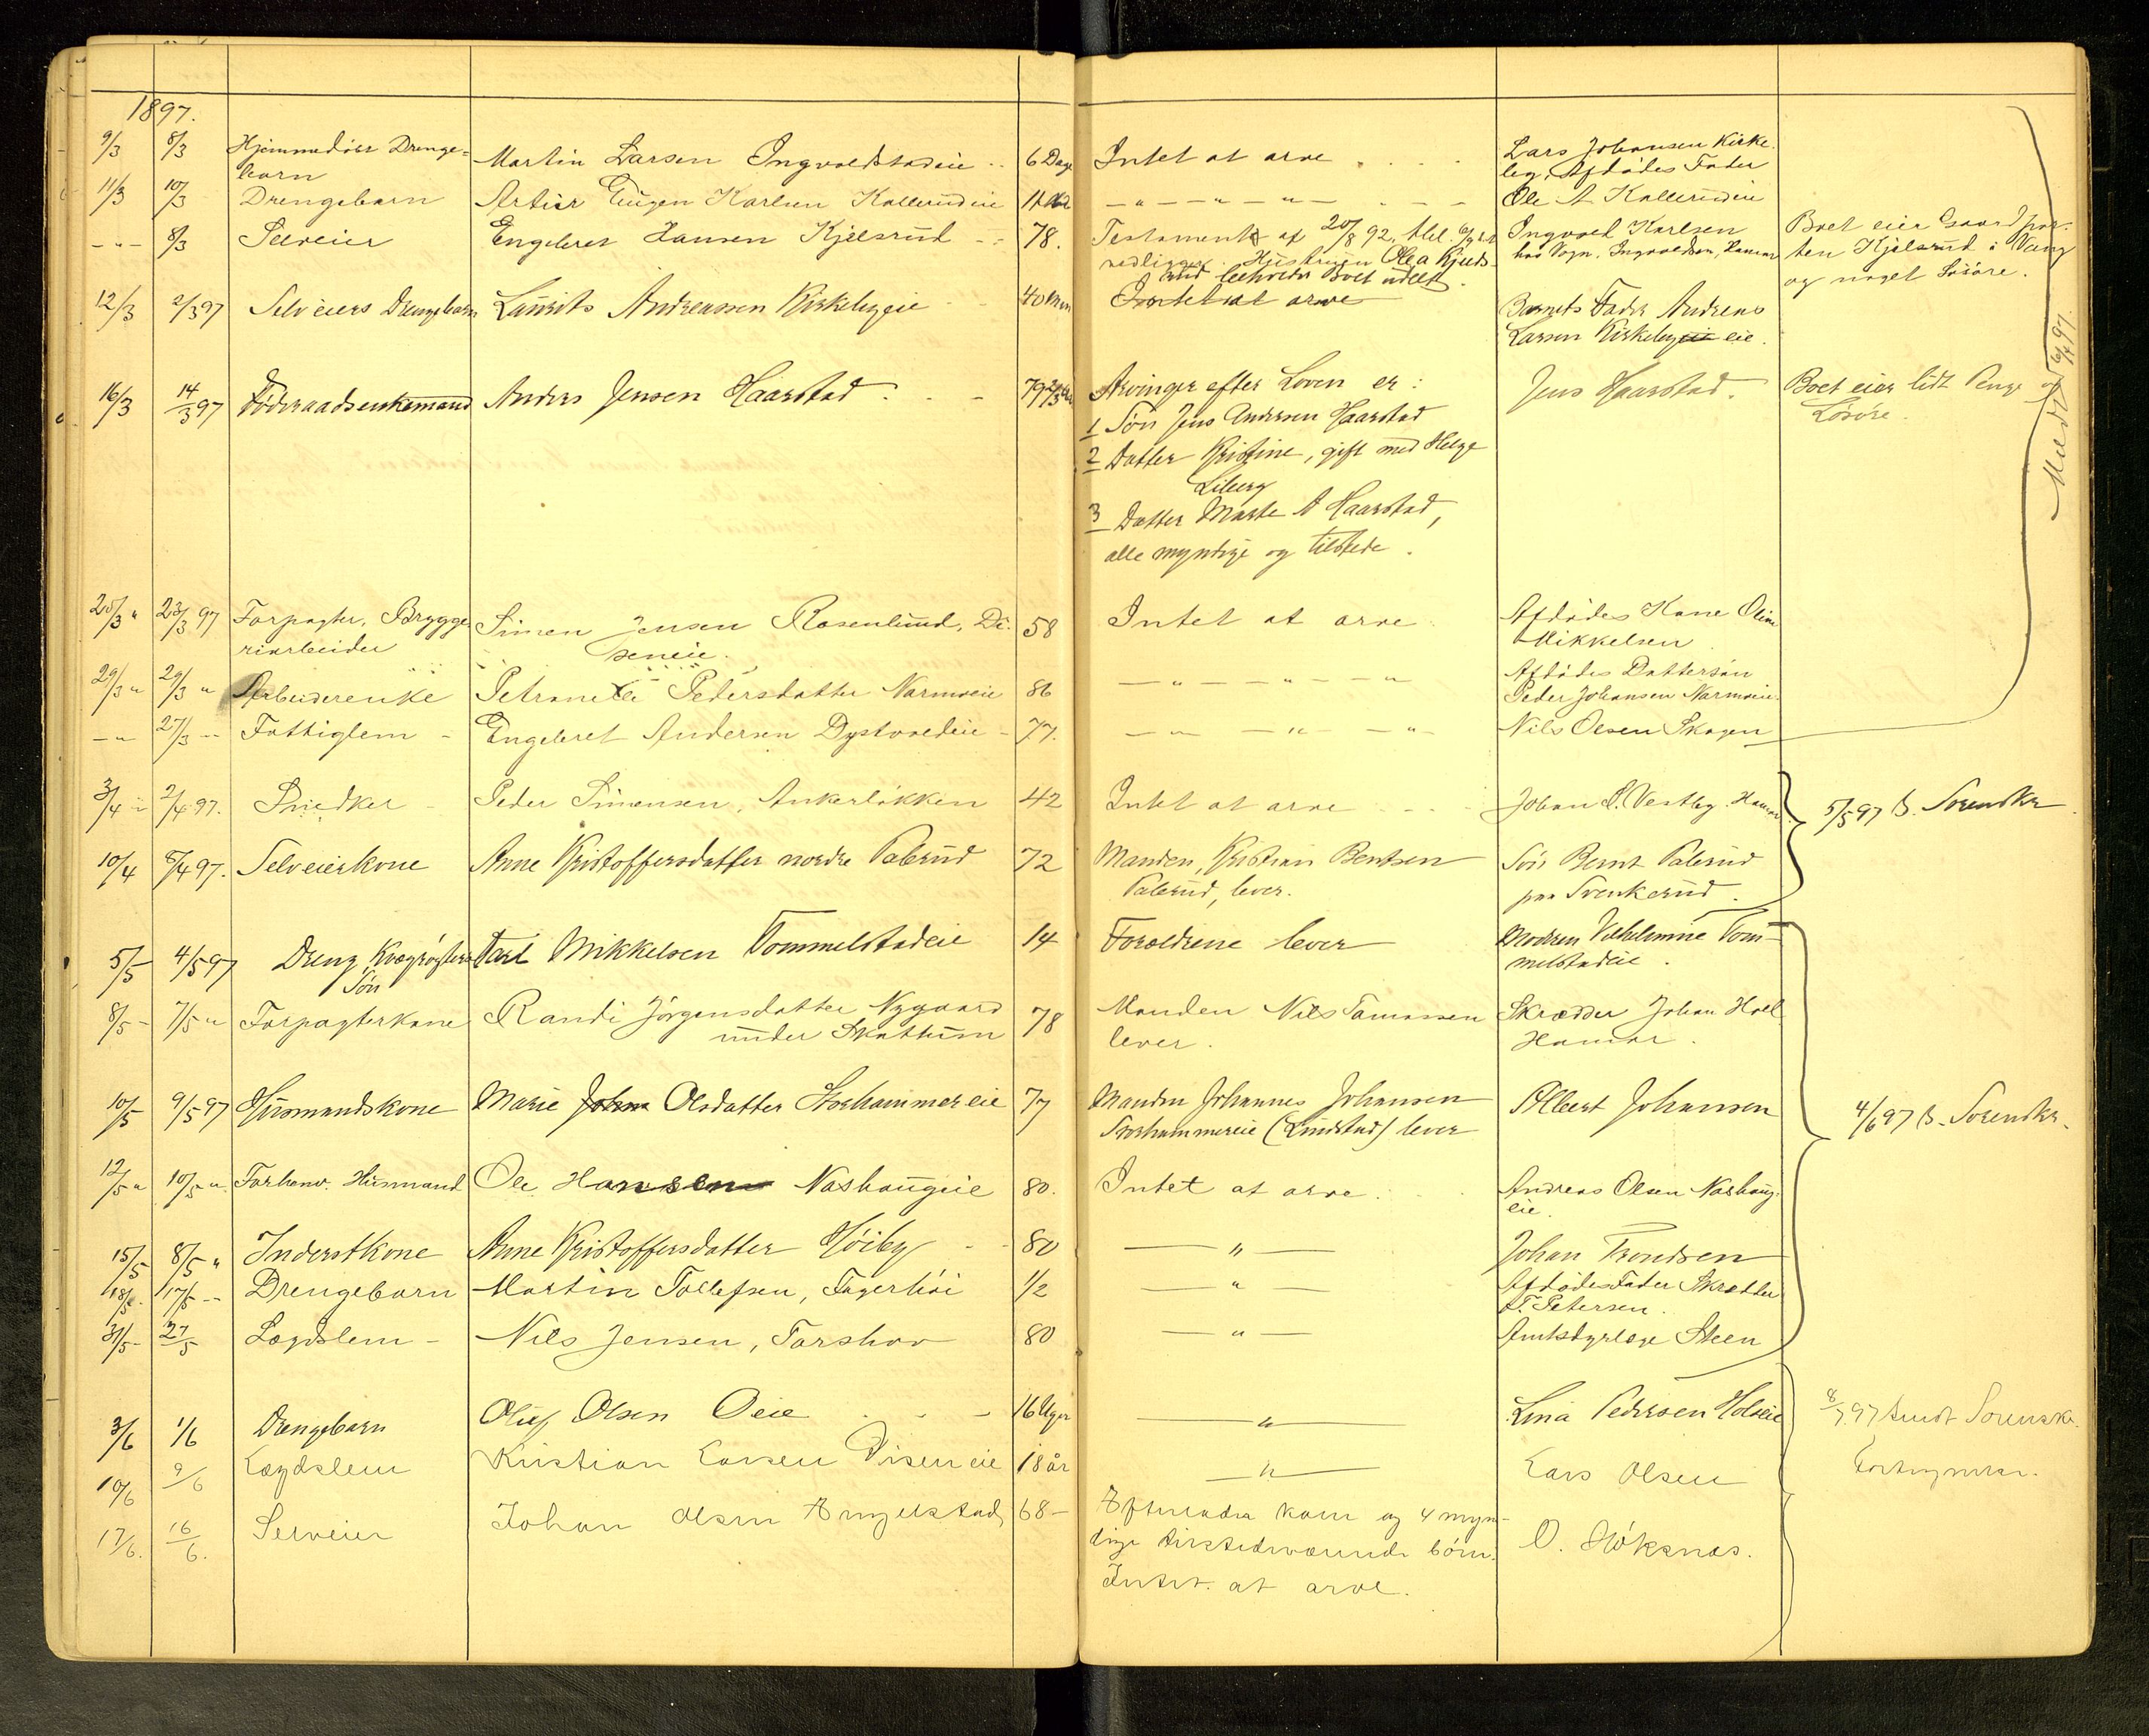 1897.
9/3 8/3 Hjemmedöbt Drenge=
barn Martin Larsen Ingvoldstadeie 6 Dage Intet at arve Lars Johansen Kirke
by, Afdödes Fader
11/3 10/3 Drengebarn Artur Eugen Karlsen Kallerudeie -"- -"- -"- Ole A Kallerudeie
-"- 8/3 Selveier Engebret Hansen Kjelsrud 78. Testament af 20/8 92, tbl.
vedligger. Hustruen Olea Kjels-
rud beholder Boet udelt. Ingvald Karlsen
hos Vogn. Ingvaldsen, Hamar Boet eier Gaardpar-
ten Kjelsrud i Vang
og noget Lösöre.
12/3 2/3 97 Selveiers Drengebarn Laurits Andreassen Kirkebyeie 40 Intet at arve Barnets Fader Andreas
Larsen Kirkebyeie eie.
16/3 14/3 97 Föderaadsenkemand Anders Jensen Haarstad 79 Arvinger efter Loven er: Jens Haarstad. Boet eier lidt Penge og
Lösöre.
1 Sön Jens Andersen Haarstad
2 Datter Kristine, gift med Helge
Liberg
3 Datter Marte A Haarstad,
alle myndige og tilstede.
Meldt 6/4 97.
25/3 " 23/3 97 Forpagter, Brygge
riarbeider Simen Jensen Rosenlund, Di-
seneie. 58 Intet at arve Afdödes Kone Oline
Mikkelsen
29/3 " 29/3 " Arbeiderenke Petronelle Pedersdatter Narmoeie 86 -"- -"- -"- Afdödes Dattersön
Peder Johansen Narmoeie.
-"- 27/3 -- Fattiglem - Engebret Andersen Dystvoldeie - 77. -"- -"- -"- Nils Olsen Skogen
3/4 - 2/4 97. Snedker - Peder Simensen, Ankerlökken 42 Intet at arve Johan S. Vestby. Hamar 5/5 97 B. Sorenskr.
10/4 8/4 97. Selveierkone Anne Kristoffersdatter nordre Palerud 72 Manden, Kristian Bentsen
Palerud, lever. Sön Bernt Palerud
paa Svenkerud.
5/5 4/5 97 Dreng, Kvægrögters
Sön Karl Mikkelsen Tommelstadeie 14 Forældrene lever Modren Vilhelmine Tom-
melstadeie.
8/5 - 7/5 " Forpagterkone Randi Jörgensdatter Nygaard
under Skattum 78 Manden Nils Tomassen
lever. Skrædder Johan Hoel
Hamar.
10/5 9/5 97 Husmandskone Marie John Olsdatter Storhammereie 77 Manden Johannes Johansen
Storhammereie (Lundstad) lever Albert Johansen 4/6 97 B. Sorenskr.
12/5 " 10/5 " Forhenv. Husmand Ole Hansen Nashaugeie 80. Intet at arve. Andreas Olsen Nashaug-
eie.
15/5 8/5 " Inderstkone Anne Kristoffersdatter Höiby 80 -"- Johan Trondsen
18/5. 17/5 -- Drengebarn Martin Tollefsen, Fagerhöi 1/2 -"- Afdödes Fader Skrædder
T. Petersen.
31/5 - 27/5 Lægdslem - Nils Jensen, Farshov 80 -"- Amtsdyrlæge Steen
3/6 1/6 Drengebarn Oluf Olsen Oeie 16 Uger -"- Lina Pedersen Holseie 8/7 97 sendt Sorenskr.
10/6 9/6 Lægdslem Kristian Larsen Diseneie 18 år -"- Lars Olsen
17/6. 16/6. Selveier Johan Olsen Engelstad 68 - Efterlader kone og 4 myn-
dige tilstedeværende börn.
Intet at arve. O. Höksnæs.